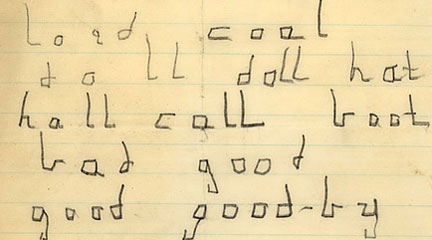 load coal
do ll doll hat
hall call
bad good
good good-by